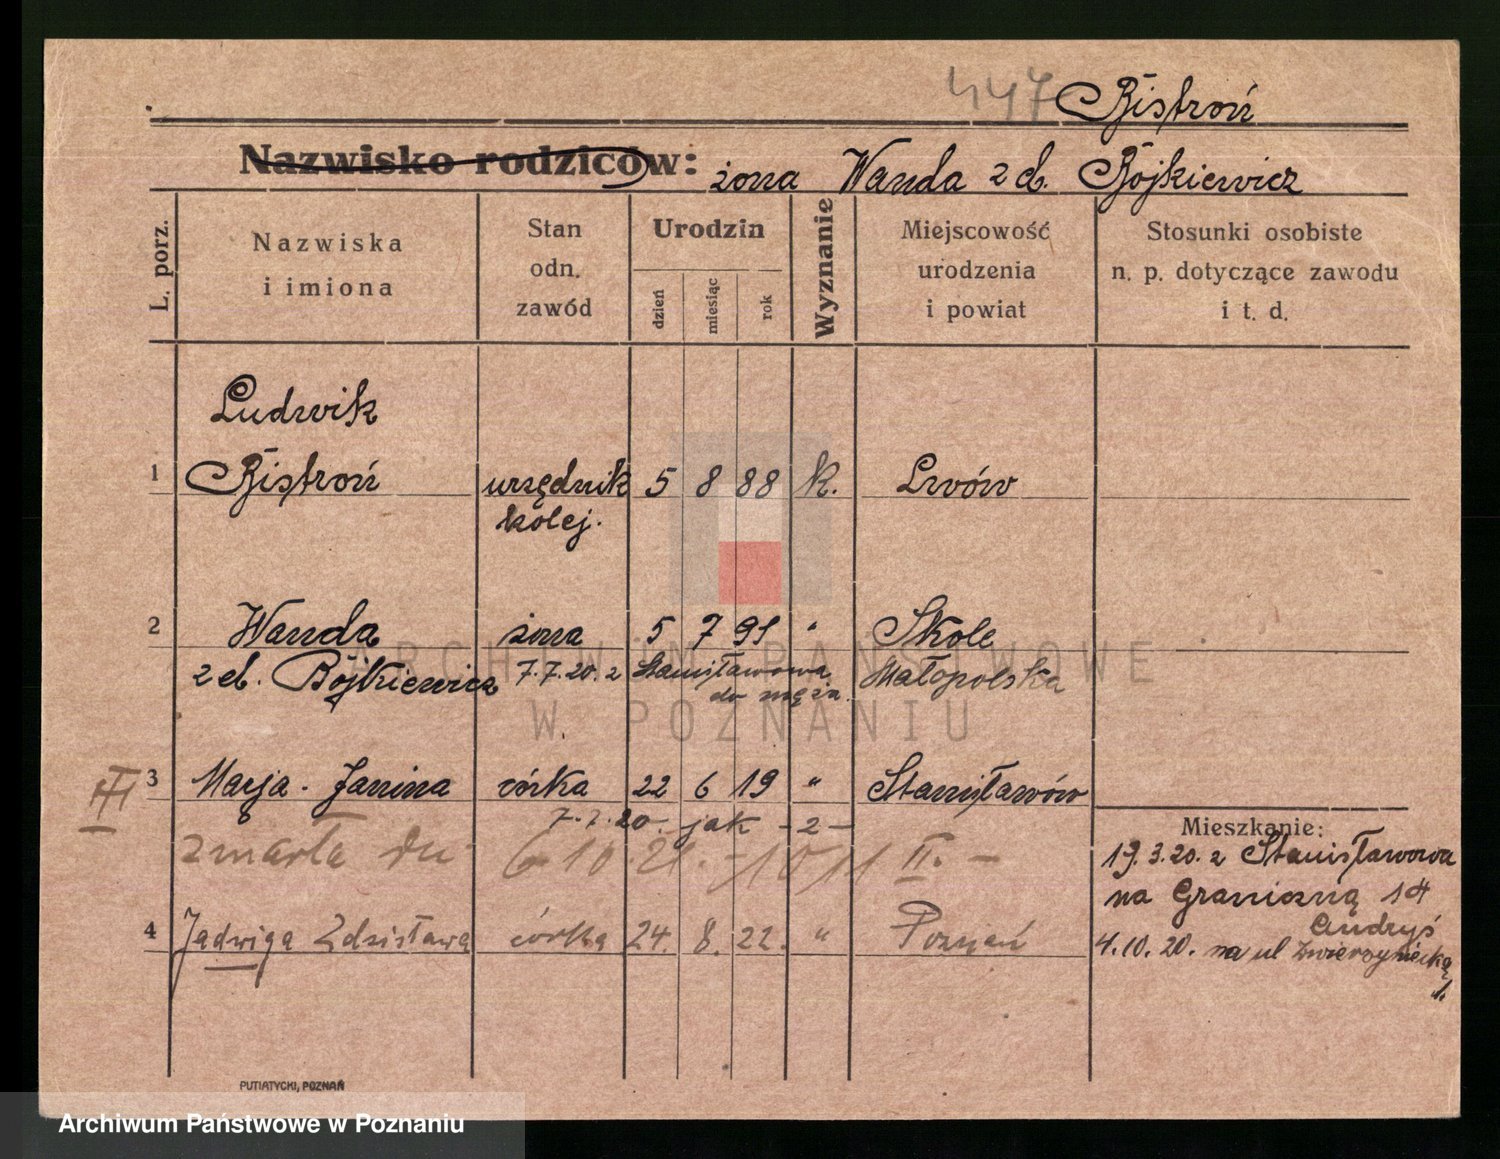 447 Bistroń
Nazwisko rodziców: żona Wanda z d. Bójkiewicz
L. porz.
Nazwiska i imiona
Stan odn. zawód
Urodzin
dzień
miesiąc
rok
Wyznanie
Miejscowość urodzenia i powiat
Stosunki osobiste n. p. dotyczące zawodu i t. d.
Ludwik
1 Bistroń urzędnik 5 8 88 k. Lwów
kolej.
2 Wanda żona 5 7 91 " Skole
z d. Bójkiewicz 7.7.20. z Stanisławowa Małopolska
do męża
3 Marja-Janina córka 22 6 19 " Stanisławów
7.7.20. jak -2-
III
zmarła dn 6 10. 21. - 10 11 II. -
4 Jadwiga Zdzisława córka 24. 8. 22. " Poznań
Mieszkanie:
19.3.20. z Stanisławowa
na Graniczną 14
Andryś
4.10.20. na ul Zwierzyniecką
1.
PUTIATYCKI, POZNAŃ
ARCHIWUM PAŃSTWOWE
W POZNANIU
Archiwum Państwowe w Poznaniu